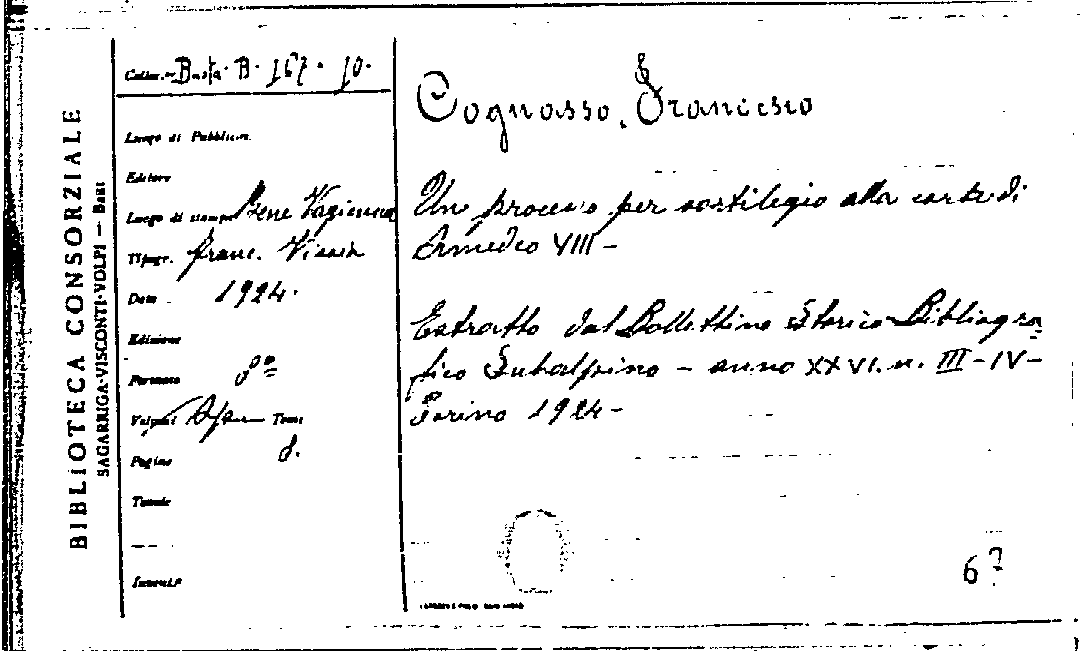 BIBLIOTECA CONSORZIALE
SAGARRIGA-VISCONTI-VOLPI — BARI
Colloc. Busta B. 167. 10.
Luogo di Pubblicaz.
Editore
Luogo di stampa Bene Vagienna
Tipogr. Franc. Vissio
Data 1924.
Edizione
Formato 8°
Volumi Op. Tomi
Pagine 8.
Tavole
Invent.
Cognasso, Francesco
Un processo per sortilegio alla corte di
Amedeo VIII -
Estratto dal Bollettino Storico-Bibliogra
fico Subalpino - anno XXVI. n. III-IV-
Torino 1924-
67